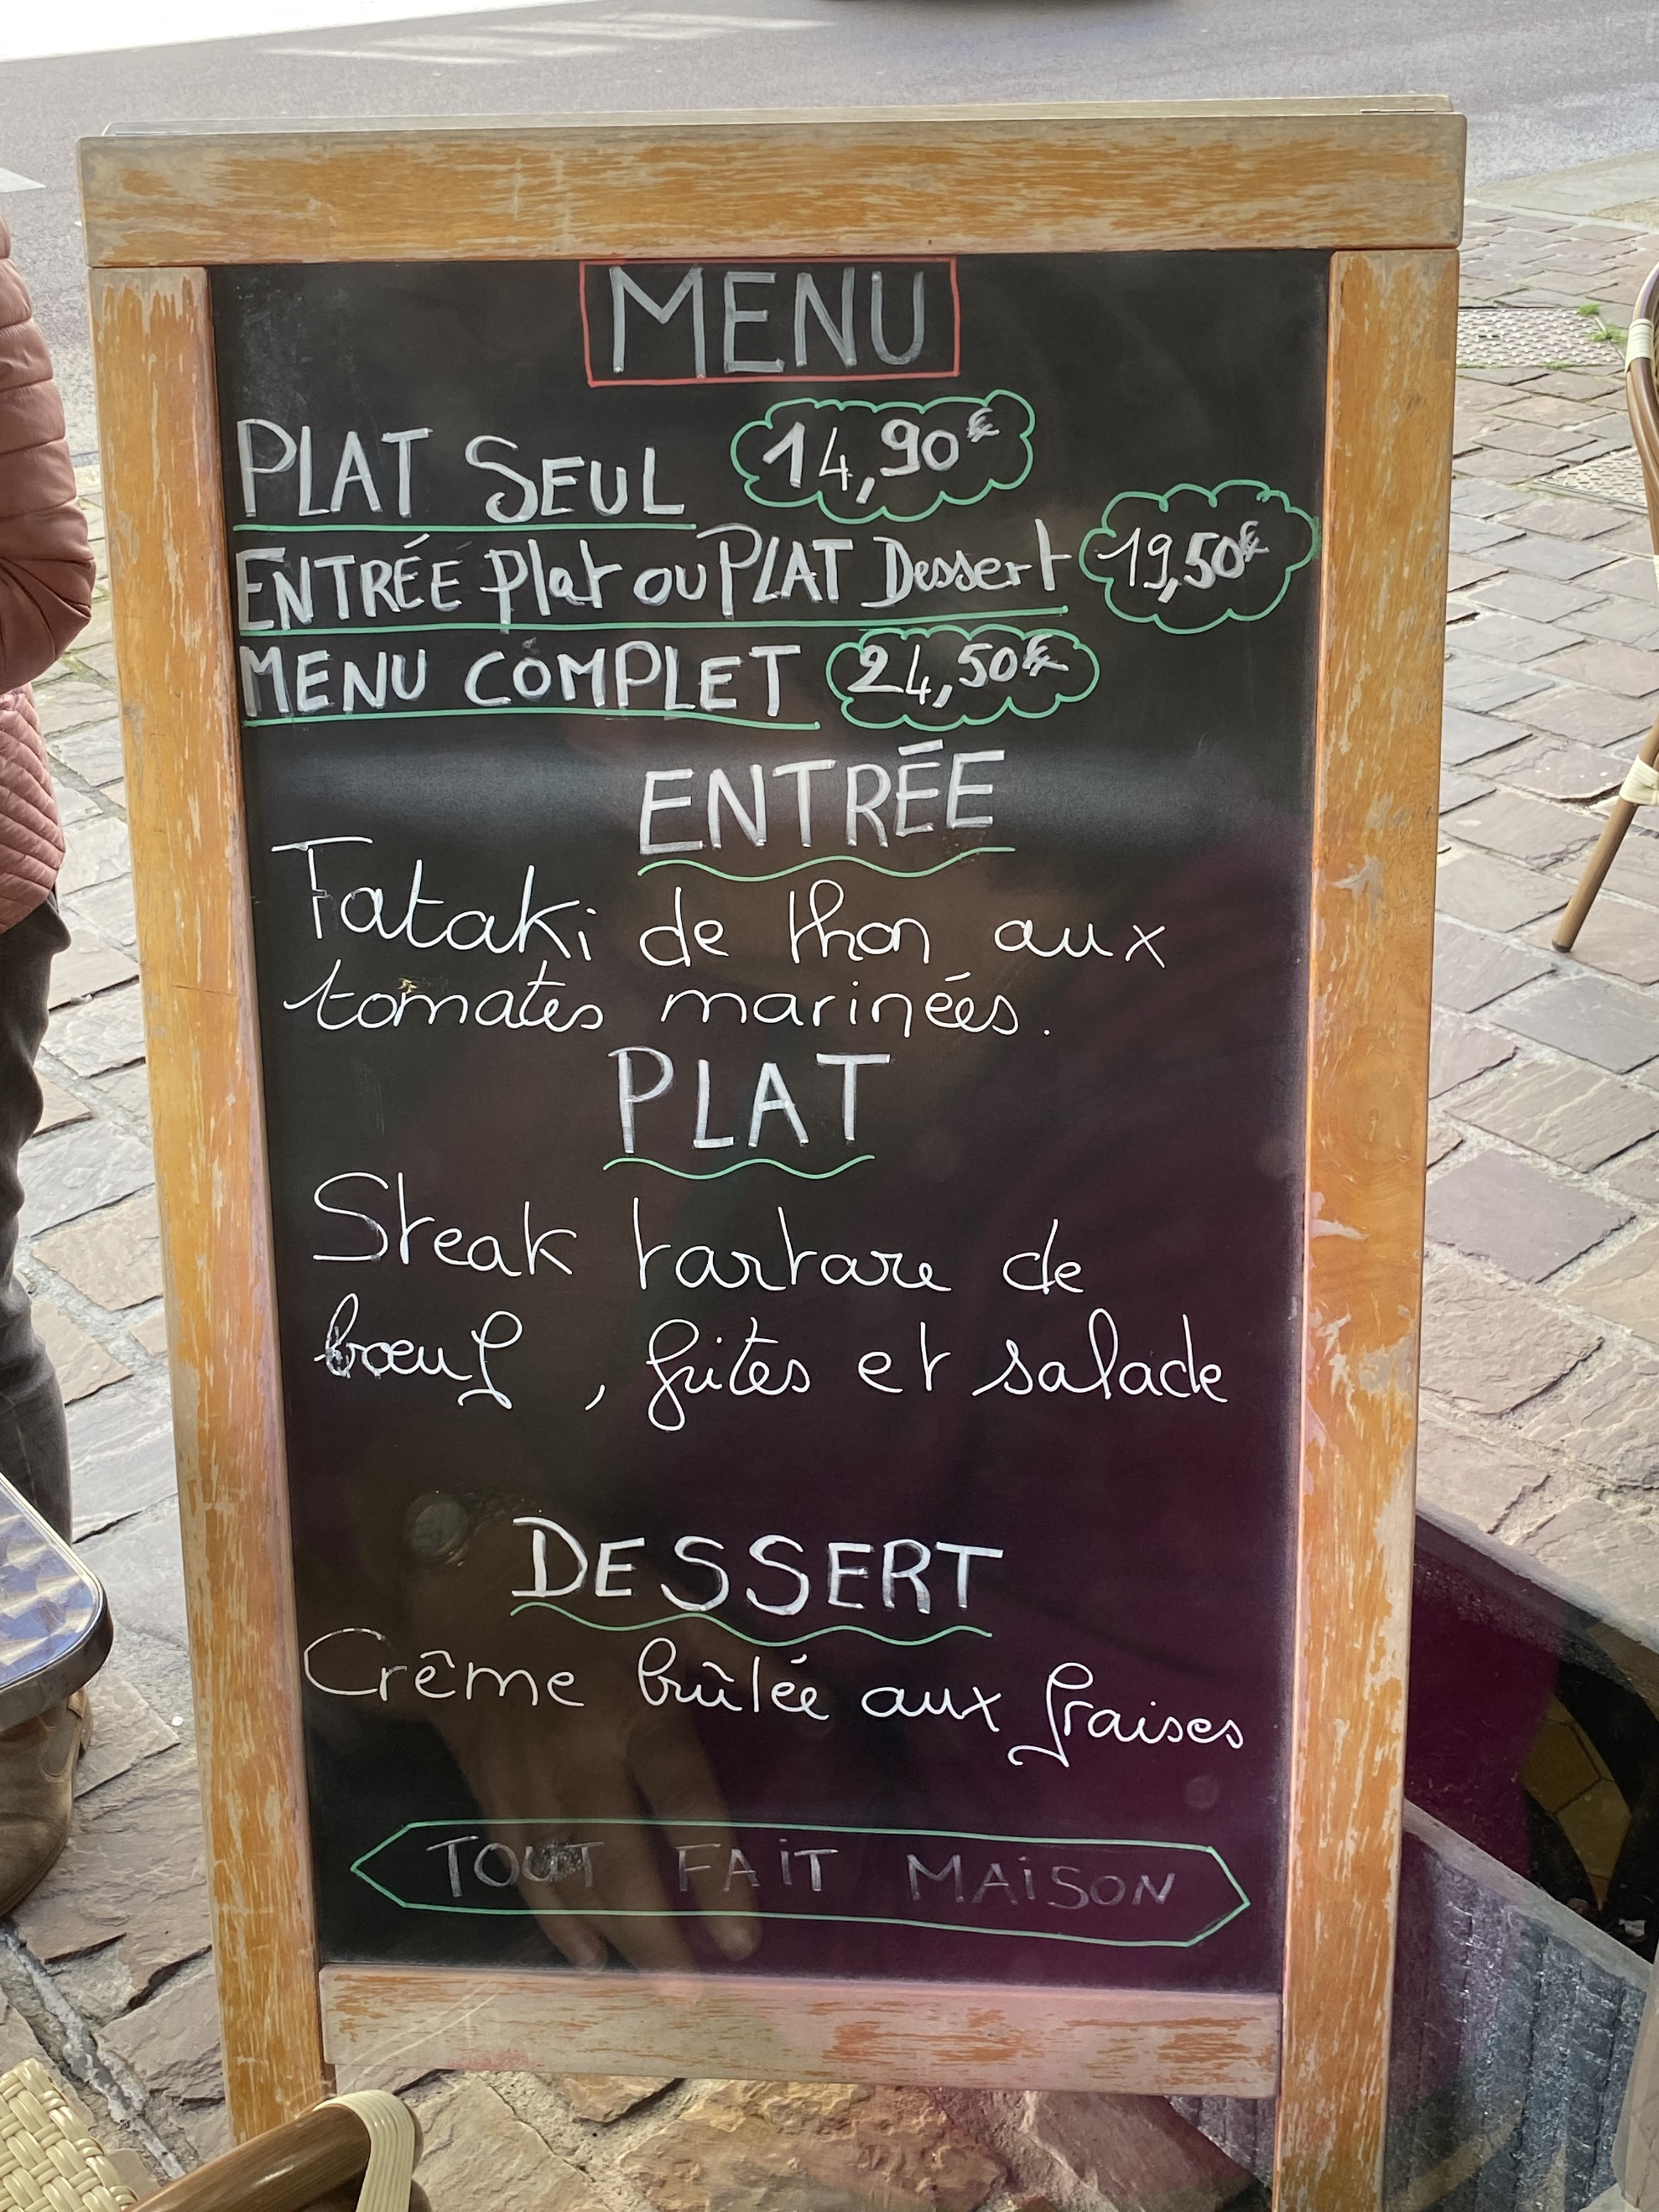 MENU
PLAT SEUL 14,90€
ENTRÉE Plat ou PLAT Dessert 19,50€
MENU COMPLET 24,50€
ENTRÉE
Tataki de thon aux
tomates marinées.
PLAT
Steak tartare de
bœuf, frites et salade
DESSERT
Crême brûlée aux fraises
TOUT FAIT MAISON